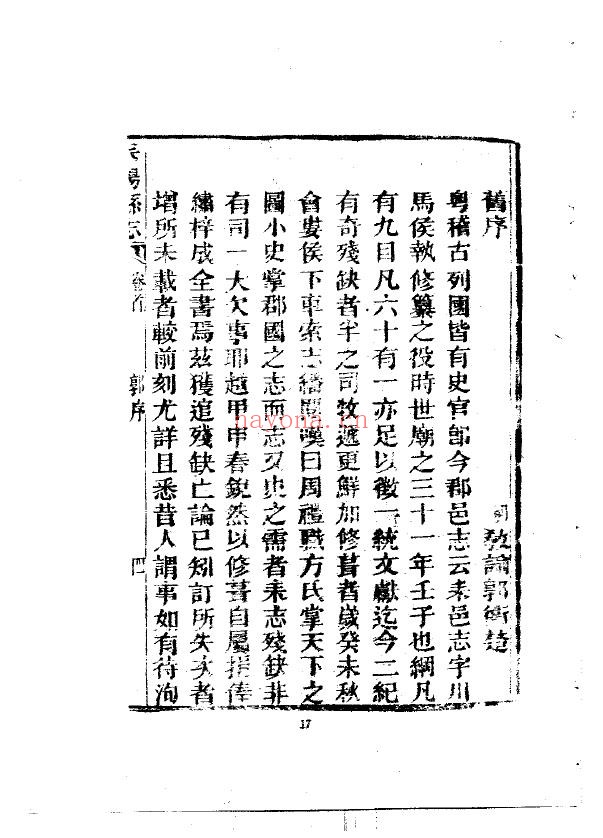 舊序
明 教諭 郭衛楚
粵稽古列國皆有史官卽今郡邑志云耒邑志字川
馬侯執修纂之役時世廟之三十一年壬子也綱凡
有九目凡六十有一亦足以徵一統文獻迄今二紀
有奇殘缺者半之司牧遞更鮮加修葺者歲癸未秋
會婁侯下車索志繙閱漢曰周禮職方氏掌天下之
圖小史掌郡國之志而志又史之需者耒志殘缺非
有司一大欠事耶越甲申春銳然以修葺自屬捐俸
繡梓成全書焉茲獲追殘缺亡論已矧訂所失次者
增所未載者較前刻尤詳且悉昔人謂事如有待洵
耒陽縣志 卷首 郭序 四
nayona.cn
17